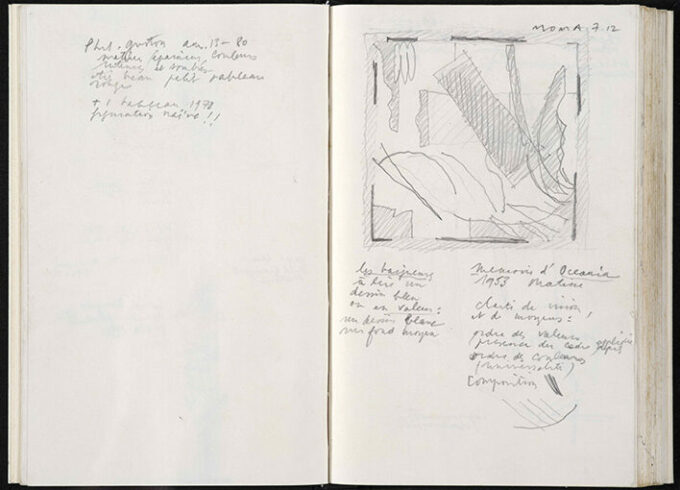 Phil. Guston 13-80
matière épaisse, couleurs
intenses et sombres
très beau petit tableau
rouge
+ 1 tableau 1978
figuration naïve!!
MOMA 7.12
les baigneurs
à vers un
dessin bleu
ou en valeur:
un dessin blanc
sur fond moyen
Memoris d'Oceania
1953 Matisse
clarté de vision
et de moyens: !
ordre des valeurs
présence du cadre
ordre de couleurs
(universalité)
Composition